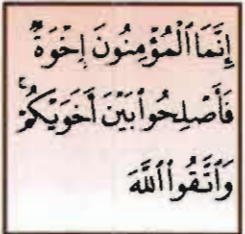 إِنَّمَا ٱلْمُؤْمِنُونَ إِخْوَةٌ
فَأَصْلِحُوا۟ بَيْنَ أَخَوَيْكُمْ ۚ
وَٱتَّقُوا۟ ٱللَّهَ